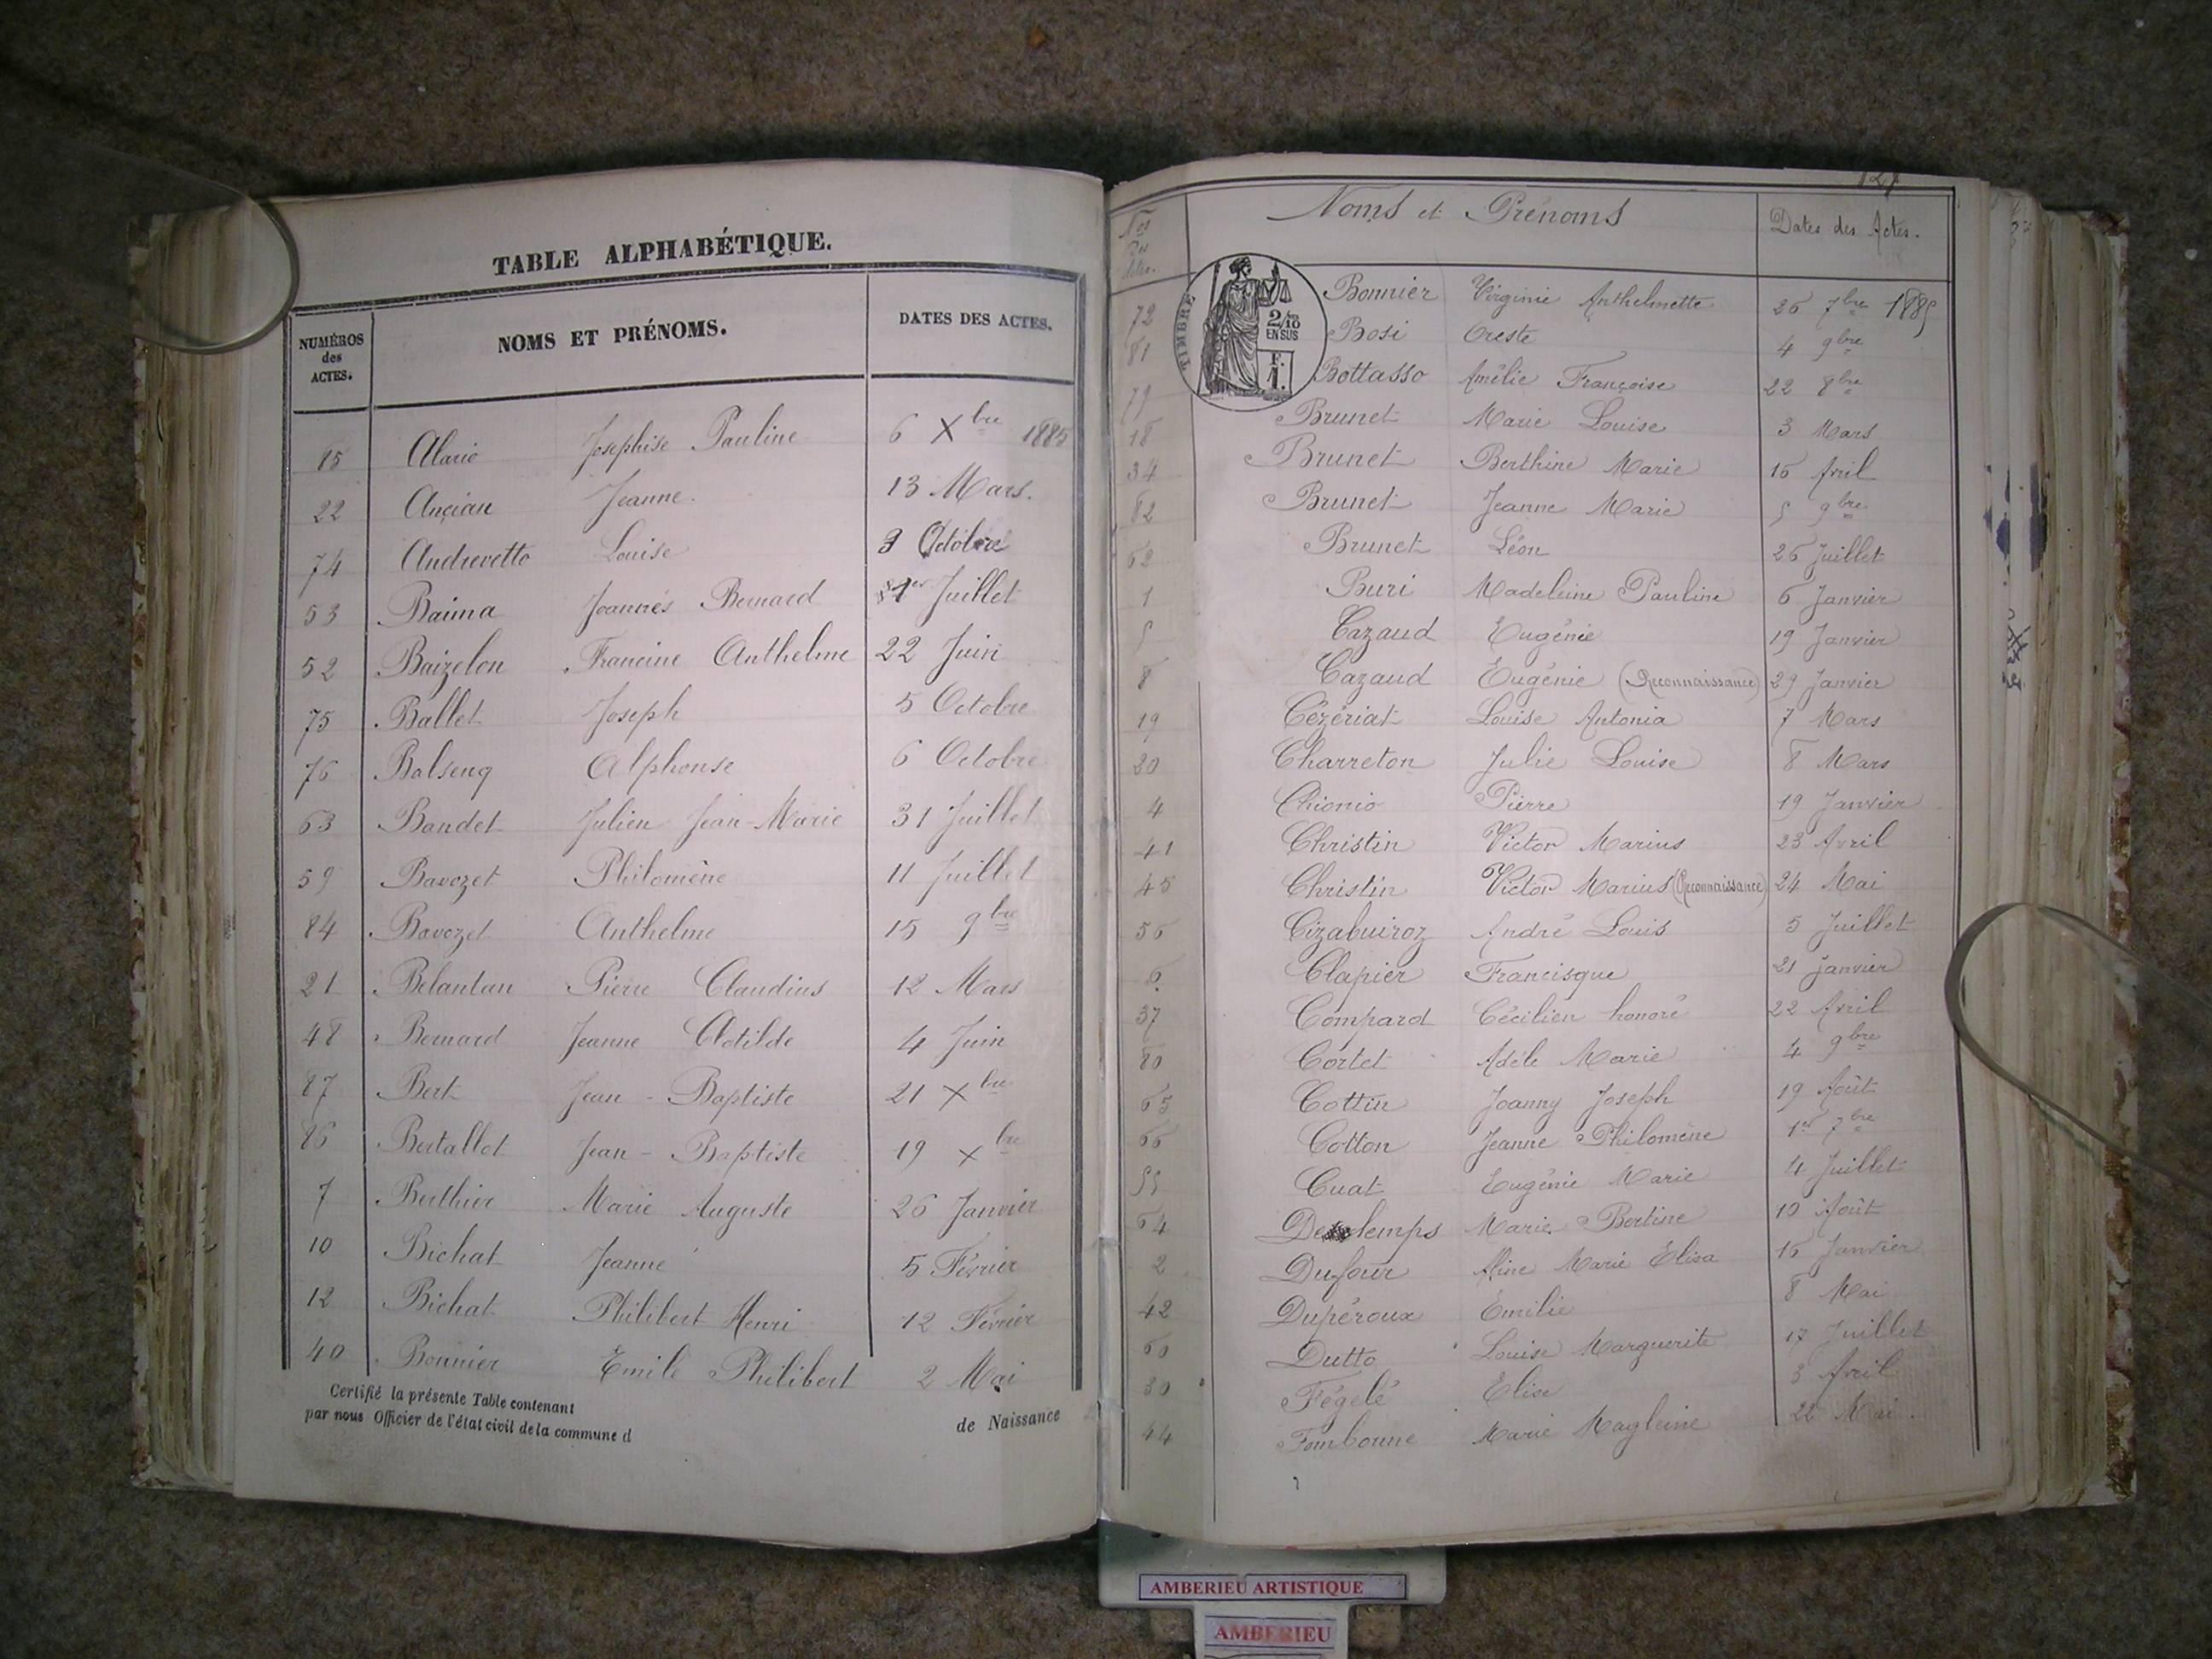 TABLE ALPHABÉTIQUE.
NUMÉROS des ACTES. NOMS ET PRÉNOMS. DATES DES ACTES.
85 Alario Josephise Pauline 6 Xbre 1885
22 Ancian Jeanne. 13 Mars.
74 Andrevetto Louise 3 Octobre
53 Baima Joannès Bernard 1er Juillet
52 Baizelon Francine Anthelme 22 Juin
75 Ballet Joseph 5 Octobre
76 Balsenq Alphonse 6 Octobre
63 Bandet Julien Jean-Marie 31 Juillet
59 Bavozet Philomène 11 Juillet
84 Bavozet Anthelme 15 9bre
21 Belantan Pierre Claudius 12 Mars
48 Bernard Jeanne Clotilde 4 Juin
87 Bert Jean - Baptiste 21 Xbre
86 Bertallot Jean - Baptiste 19 Xbre
7 Berthier Marie Auguste 26 Janvier
10 Bichat Jeanne 5 Février
12 Bichat Philibert Henri 12 Février
40 Bonnier Emile Philibert 2 Mai
Certifié la présente Table contenant de Naissance
par nous Officier de l'état civil de la commune d
127
Nos des Actes. Noms et Prénoms Dates des Actes.
TIMBRE
2/10 EN SUS
F. 1.
72 Bonnier Virginie Anthelmette 26 7bre 1885
81 Bosi Oreste 4 9bre
79 Bottasso Amélie Françoise 22 8bre
18 Brunet Marie Louise 3 Mars
34 Brunet Berthine Marie 16 Avril
82 Brunet Jeanne Marie 5 9bre
62 Brunet Léon 26 Juillet
1 Buri Madeleine Pauline 6 Janvier
5 Cazaud Eugénie 19 Janvier
8 Cazaud Eugénie (Reconnaissance) 29 Janvier
19 Cézériat Louise Antonia 7 Mars
20 Charreton Julie Louise 8 Mars
4 Chionio Pierre 19 Janvier
41 Christin Victor Marius 23 Avril
45 Christin Victor Marius (Reconnaissance) 24 Mai
56 Cizabuiroz André Louis 5 Juillet
6 Clapier Francisque 21 Janvier
37 Compard Cécilien honoré 22 Avril
80 Cortet Adèle Marie 4 9bre
65 Cottin Joanny Joseph 19 Août
66 Cotton Jeanne Philomène 1er 7bre
55 Cuat Eugénie Marie 4 Juillet
64 Destemps Marie Bertine 10 Août
2 Dufour Aline Marie Elisa 16 Janvier
42 Dupéroux Emilie 8 Mai
60 Dutto Louise Marguerite 17 Juillet
30 Fégelé Elise 3 Avril
44 Fombonne Marie Magleine 22 Mai.
AMBERIEU ARTISTIQUE
AMBERIEU